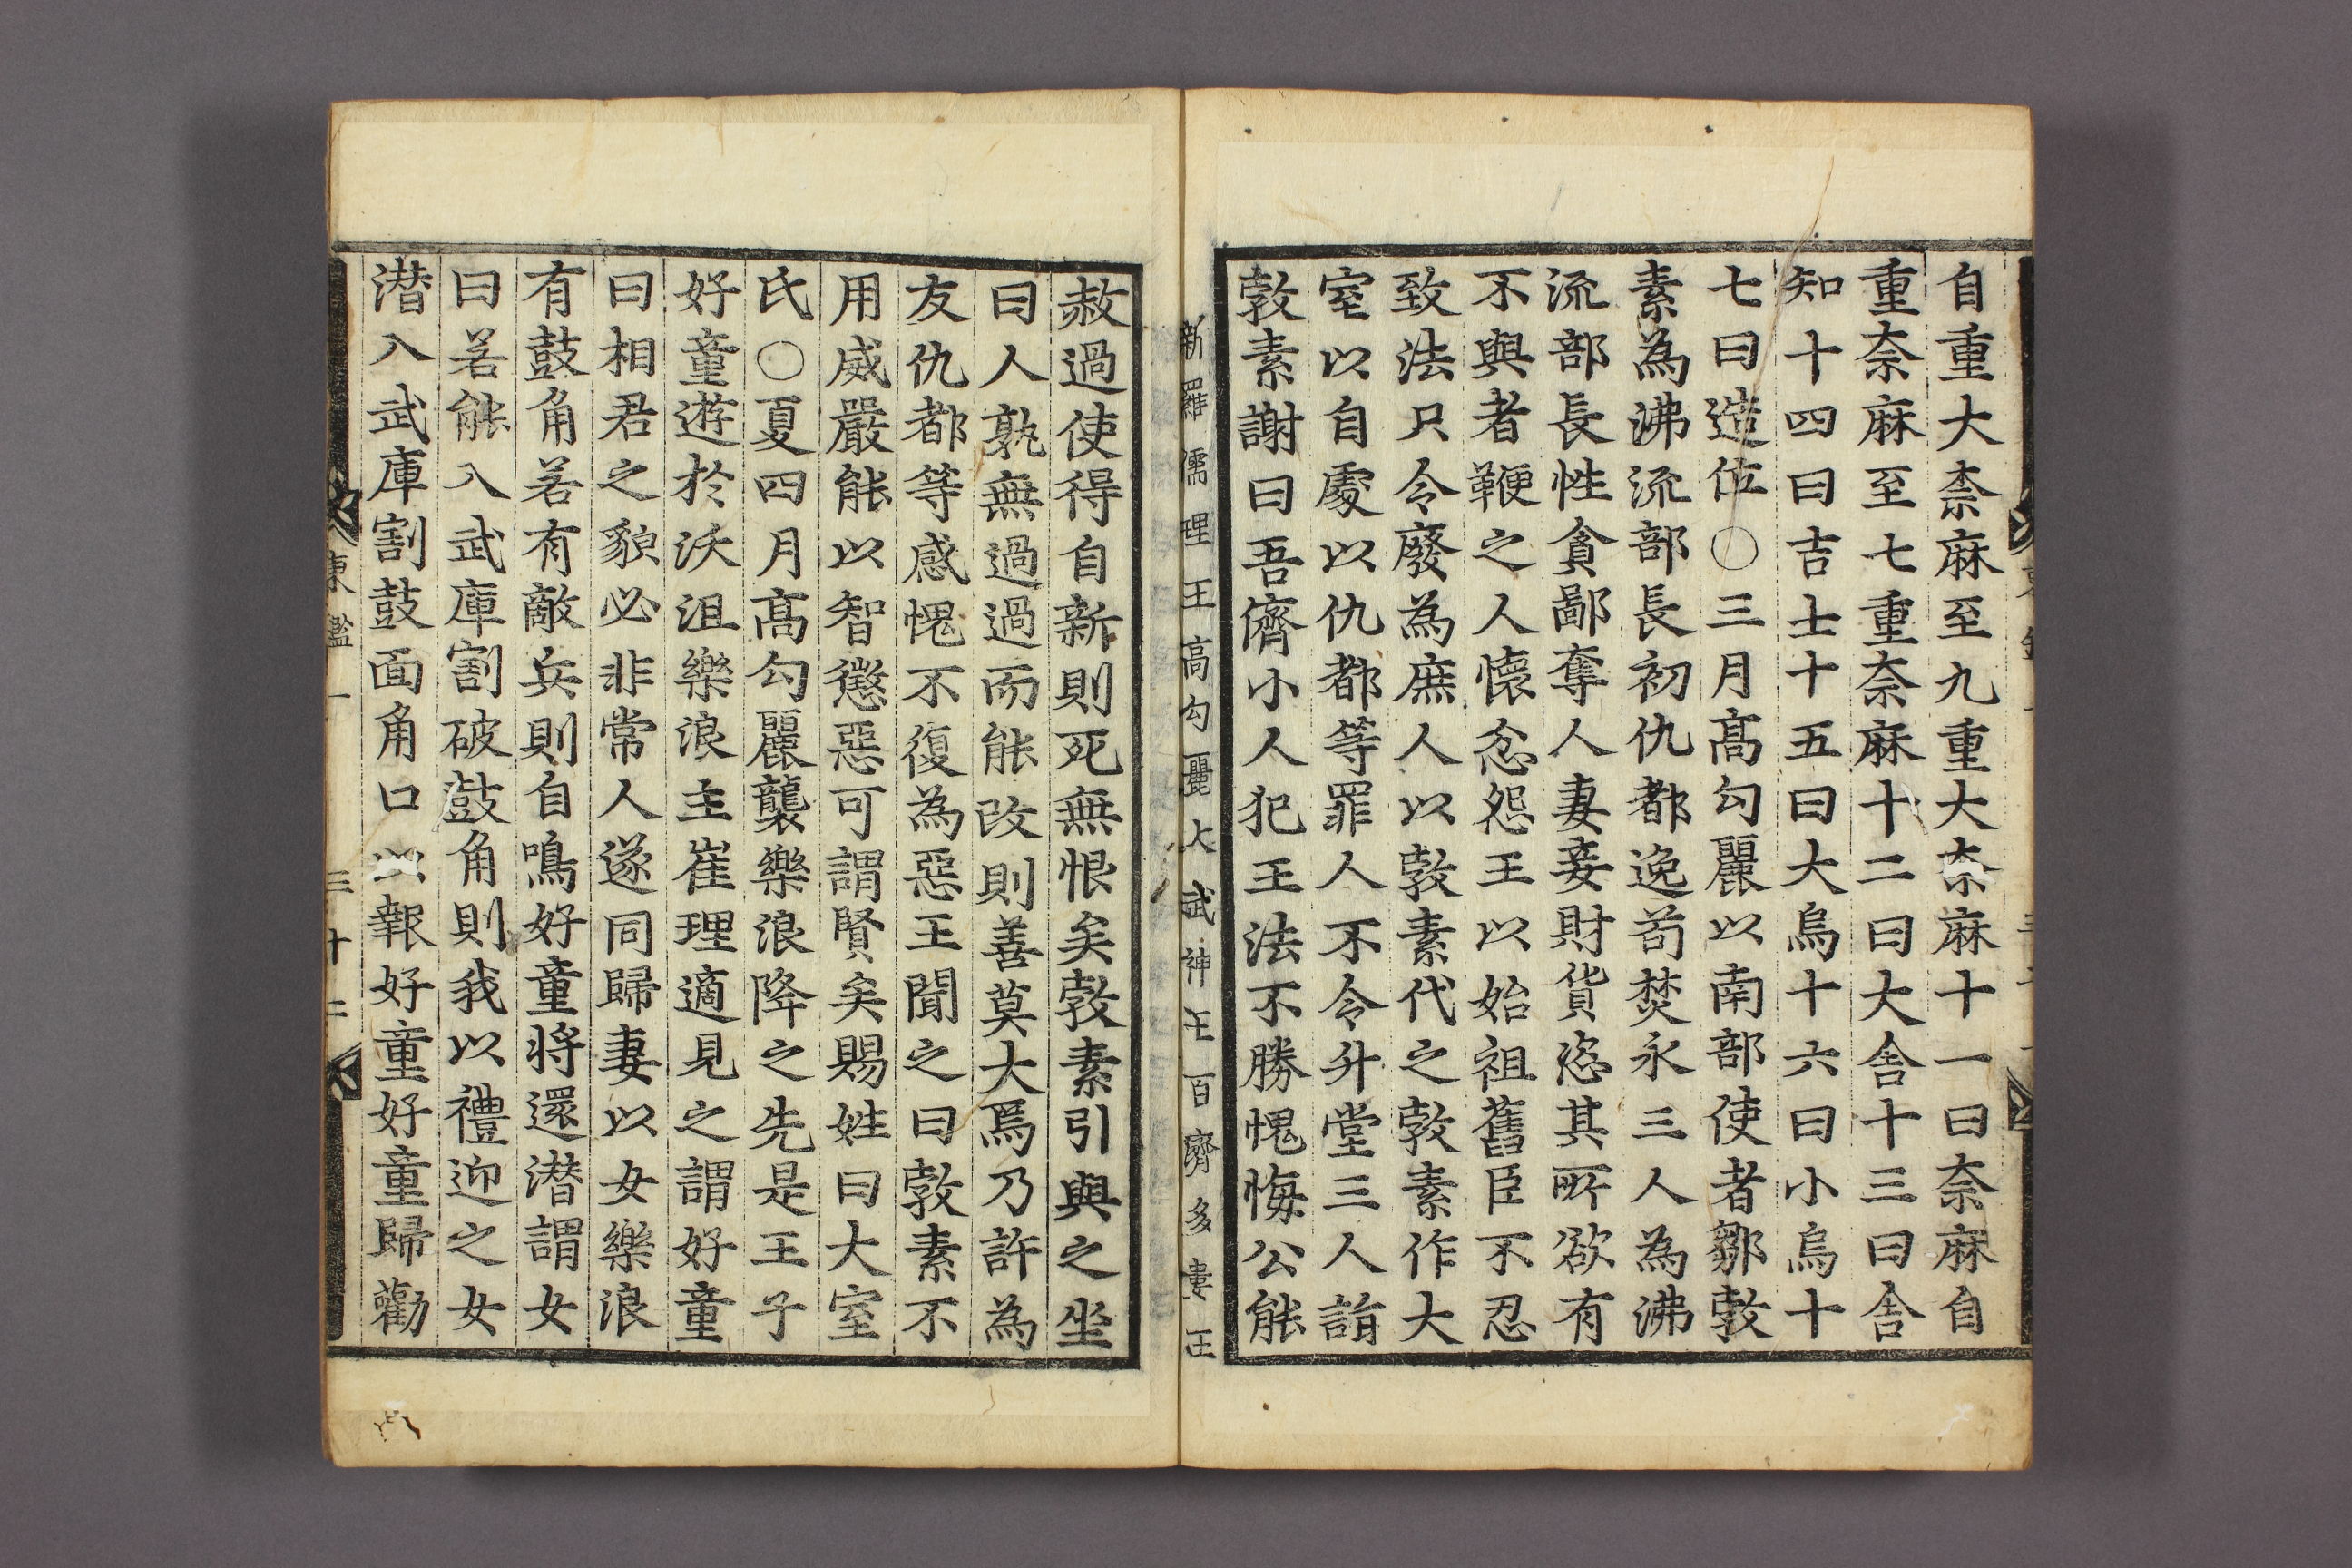 自重大柰麻至九重大奈麻十一曰奈麻自
重奈麻至七重奈麻十二曰大舍十三曰舍
知十四曰吉士十五曰大烏十六曰小烏十
七曰造位〇三月高勾麗以南部使者鄒㪟
素為沸流部長初仇都逸苟焚永三人為沸
流部長性貪鄙奪人妻妾財貨恣其所欲有
不與者鞭之人懷忿怨王以始祖舊臣不忍
致法只令廢為庶人以㪟素代之㪟素作大
室以自處以仇都等罪人不令升堂三人詣
㪟素謝曰吾儕小人犯王法不勝愧悔公能
新羅儒理王高勾麗大武神王百濟多婁王
赦過使得自新則死無恨矣㪟素引與之坐
曰人孰無過過而能改則善莫大焉乃許為
友仇都等感愧不復為惡王聞之曰㪟素不
用威嚴能以智懲惡可謂賢矣賜姓曰大室
氏〇夏四月高勾麗襲樂浪降之先是王子
好童遊於沃沮樂浪主崔理適見之謂好童
曰相君之貌必非常人遂同歸妻以女樂浪
有鼓角若有敵兵則自鳴好童將還潜謂女
曰若能入武庫割破鼓角則我以禮迎之女
潜入武庫割鼓面角口以報好童好童歸勸
東鑑一 三十二